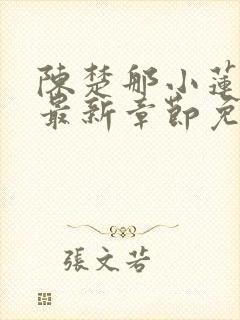 陳楚那小蓮
最新章節免
張文若